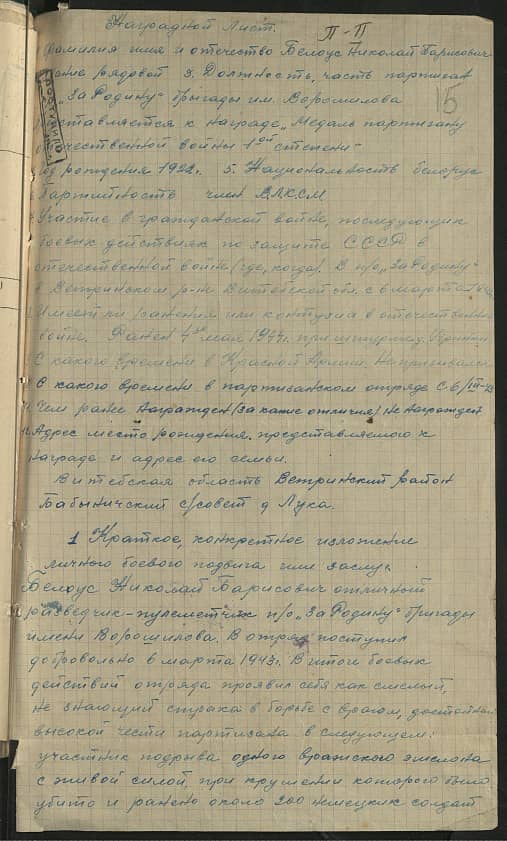 Наградной Лист.
П-П
15
Фамилия имя и отчество Белоус Николай Барисович
рядовой 3. Должность, часть партизан
„За Родину" бригады им. Ворошилова
к награде „Медаль партизану
отечественной войны 1ой степени"
рождения 1922г. 5. Национальность белорус
партийность член ВЛКСМ
Участие в гражданской войне, последующих
боевых действиях по защите СССР в
отечественной войне (где, когда). В п/о „За Родину"
в Ветринском р-не Витебской обл. с 6 марта
Имеет ли ранения или контузии в отечественной
войне. Ранен 4го мая 1944г. при штурме
С какого времени в Красной Армии. Не призывался
С какого времени в партизанском отряде С 6/III-43
Чем ранее награжден (за какие отличия) не награжден
Адрес место рождения. представляемого к
награде и адрес его семьи.
Витебская область Ветринский район
Бабыничский с/совет д Лука.
1 Краткое, конкретное изложение
личного боевого подвига или заслуг
Белоус Николай Барисович отличный
разведчик-пулеметчик п/о „За Родину" бригады
имени Ворошилова. В отряд поступил
добровольно 6 марта 1943г. В итоги боевых
действий отряда проявил себя как смелый,
не знающий страха в борьбе с врагом, достойный
высокой чести партизана в следующем:
участник подрыва одного вражского эшелона
с живой силой, при крушении которого было
убито и ранено около 200 немецких солдат
ПОСТУПИЛО